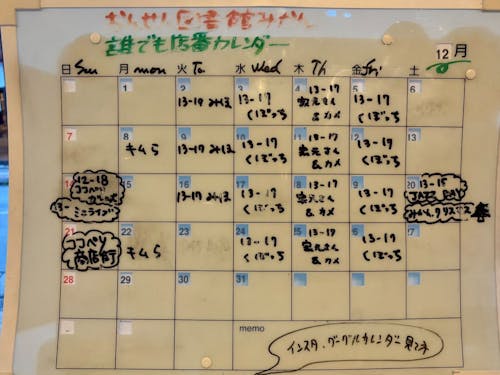 おんせん図書館みかん
誰でも店番カレンダー
12月
日 Sun 月 mon 火 Tu 水 Wed 木 Th 金 fri 土
1 2 3 4 5 6
13-17 みほ 13-17 くぼっち 13-17 宏元さん & カメ 13-17 くぼっち
7 8 9 10 11 12 13
キムら 13-17 みほ 13-17 くぼっち 13-17 宏元さん & カメ 13-17 くぼっち
14 15 16 17 18 19 20
12-18 ココペリ
ミニライブ
13-17 みほ 13-17 くぼっち 13-17 宏元さん & カメ 13-17 くぼっち
13-15 JAZZ DAY
みかん クリスマス
21 22 23 24 25 26 27
ココペリ 商店街
キムら 13-17 くぼっち 13-17 宏元さん & カメ 13-17 くぼっち
28 29 30 31
memo
インスタ、グーグルカレンダー見てネ